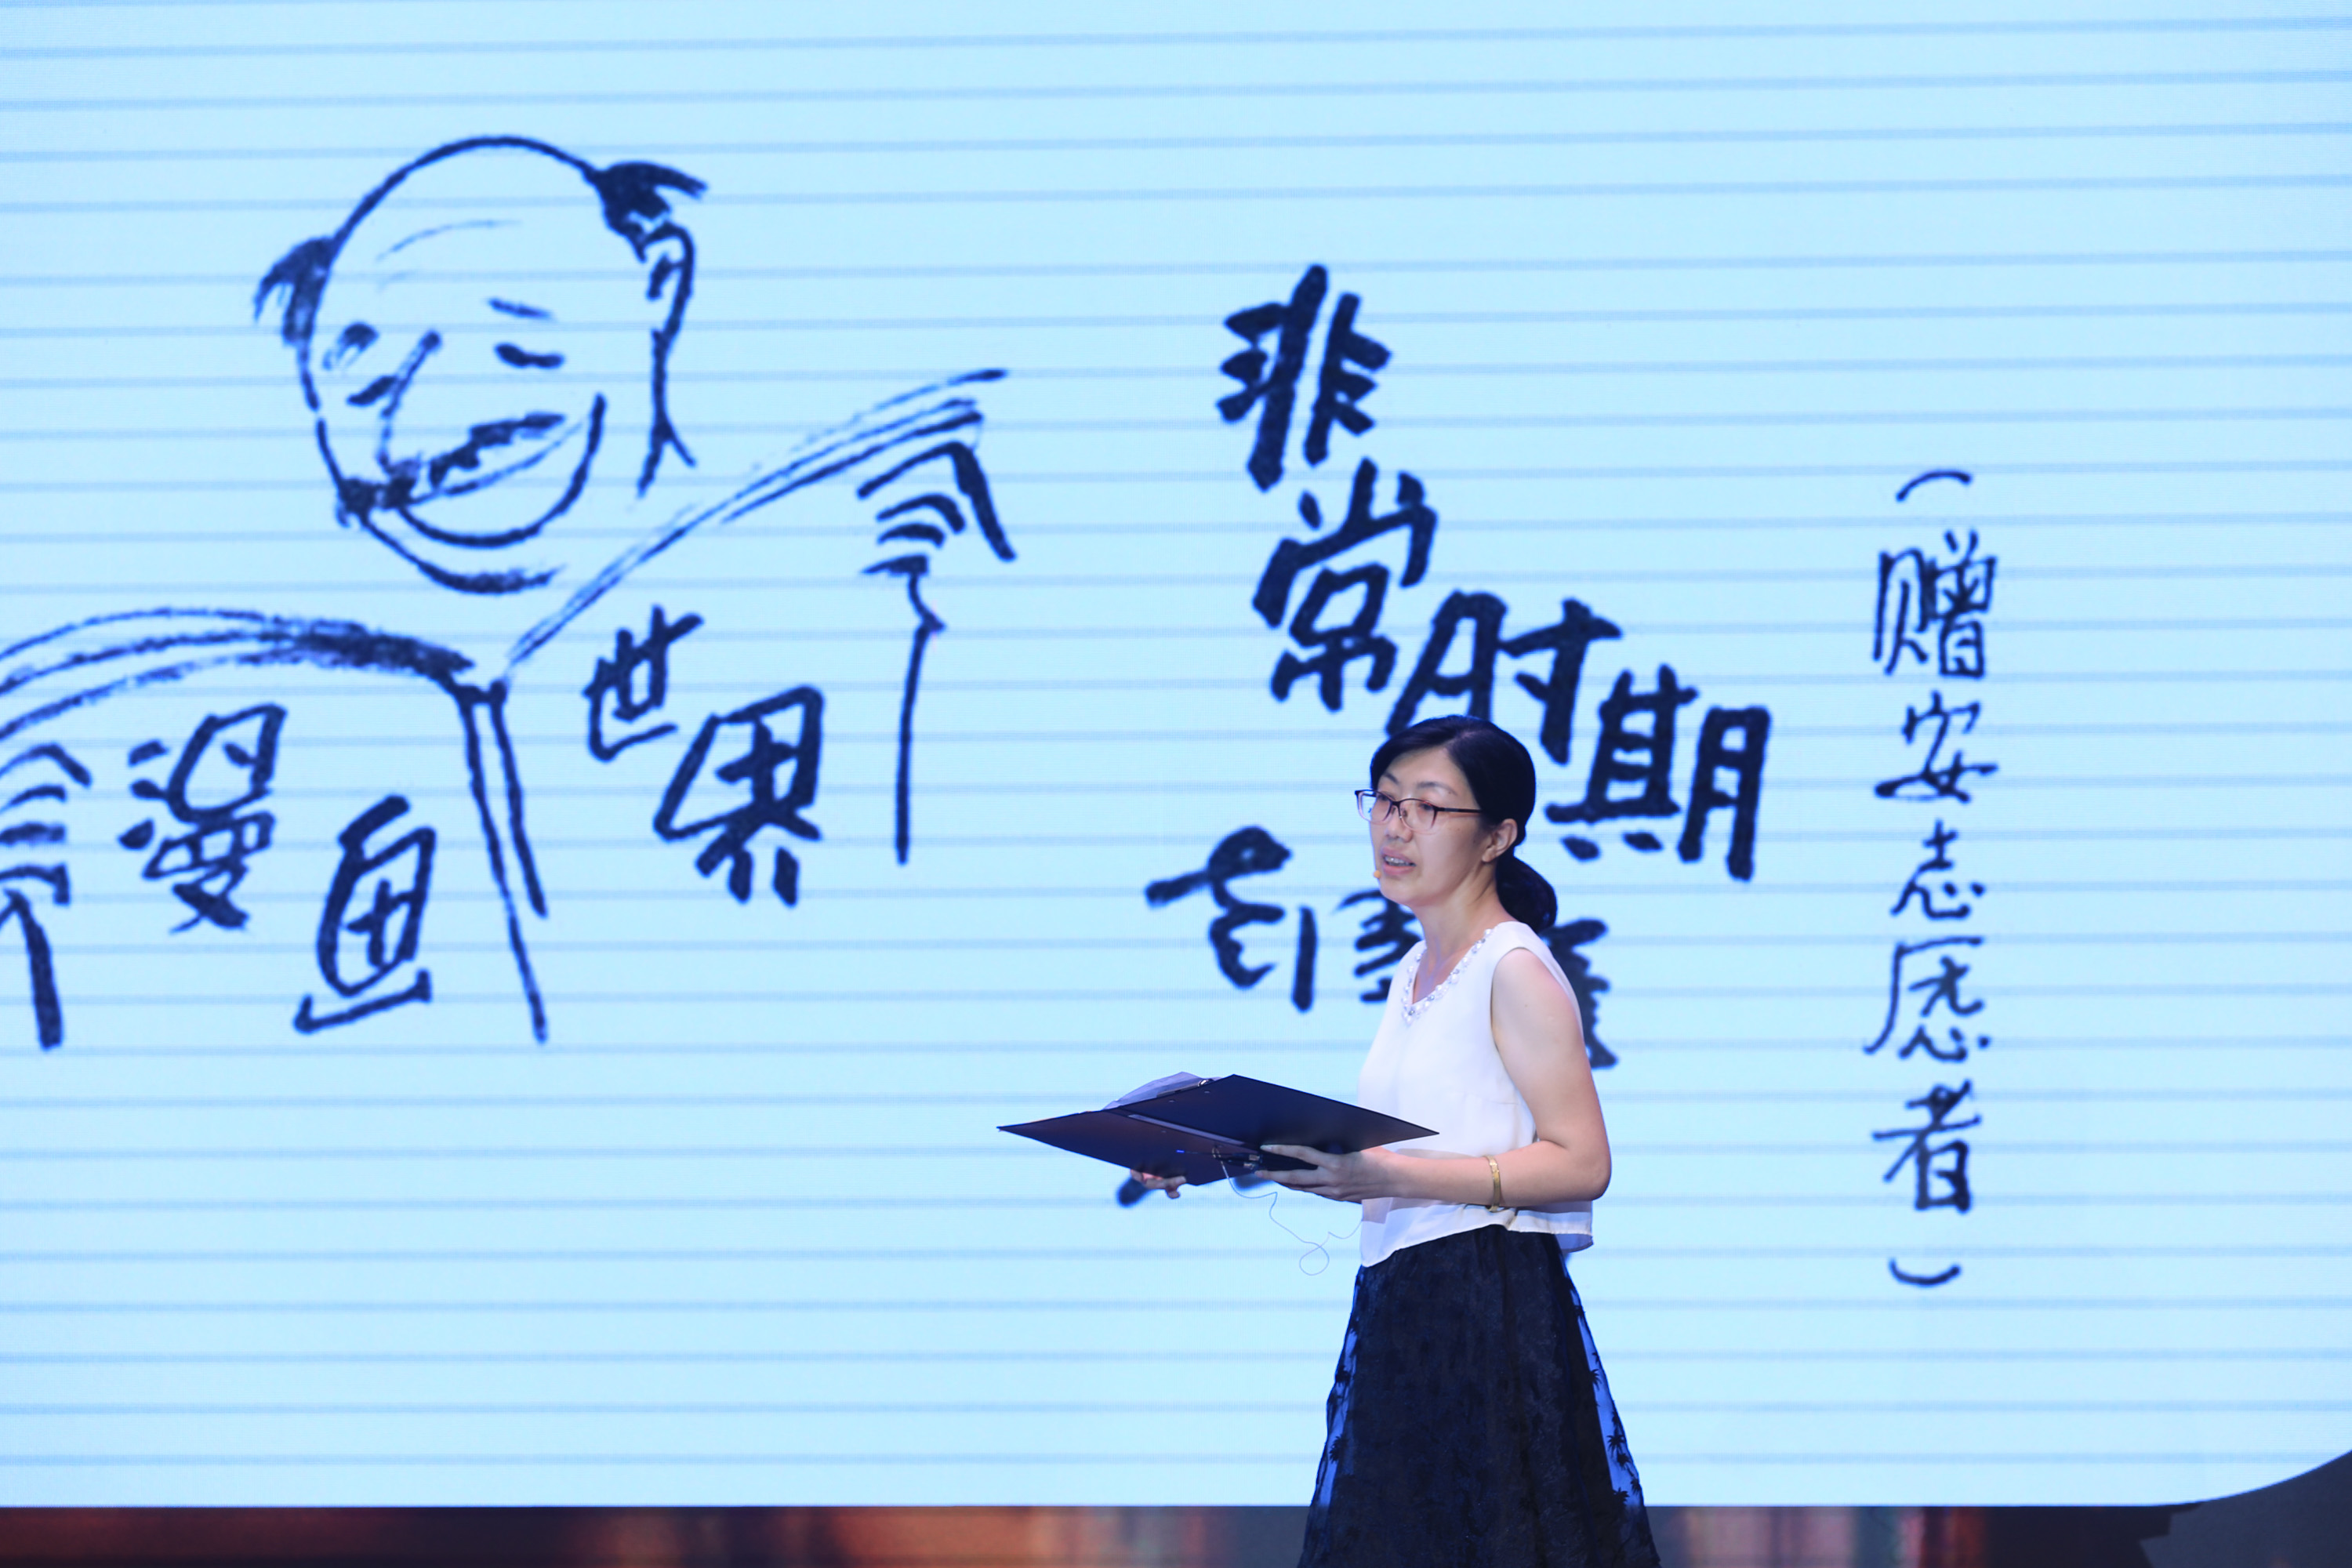 漫画
世界
非常时期
(赠安志愿者)